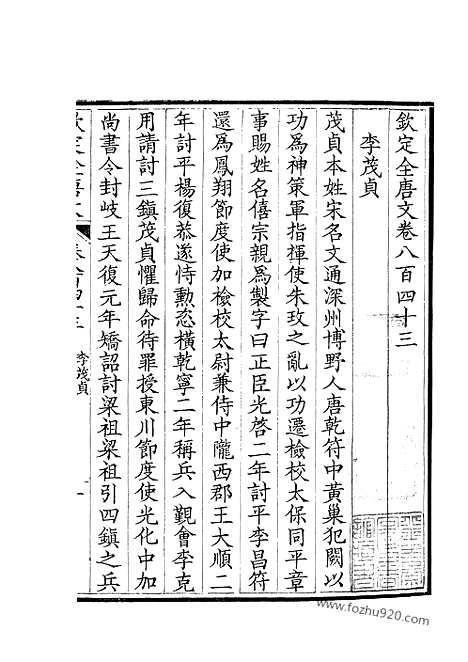 欽定全唐文卷八百四十三
李茂貞
茂貞本姓宋名文通深州博野人唐乾符中黃巢犯闕以
功為神策軍指揮使朱玫之亂以功遷檢校太保同平章
事賜姓名僖宗親為製字曰正臣光啓二年討平李昌符
還為鳳翔節度使加檢校太尉兼侍中隴西郡王大順二
年討平楊復恭遂恃勳恣橫乾寧二年稱兵入覲會李克
用請討三鎮茂貞懼歸命待罪授東川節度使光化中加
尚書令封岐王天復元年矯詔討梁祖梁祖引四鎮之兵
李茂貞
一
www.fozhu920.com